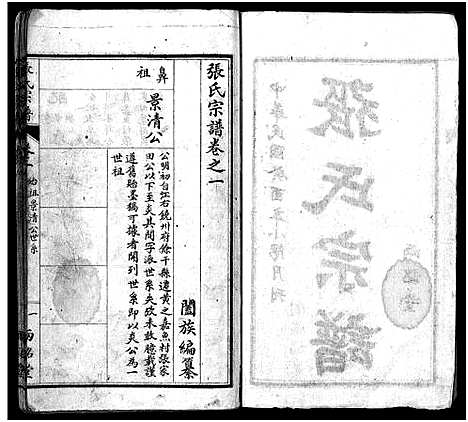 張氏宗譜
中華民國
月刊
張氏宗譜卷之一
闔族編纂
鼻祖
景清公
公明初自江右饒州府餘干縣遷黃之嘉魚村張家
田公以下至炎其間字派世系失攷未敢臆載謹
遵舊貽墨稿可據者開列世系即以炎公為一
世祖
張氏宗譜
卷之一
始祖景清公世系
一
兩銘堂